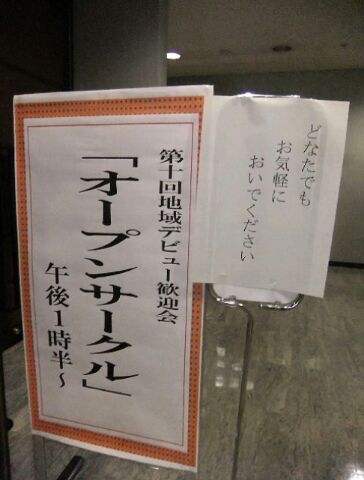 第十回地域デビュー歓迎会
「オープンサークル」
午後1時半～
どなたでも
お気軽に
おいでください